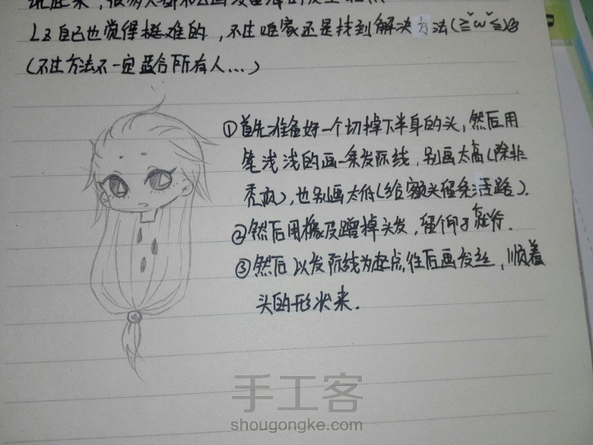 LZ自己也觉得挺难的,不过咱家还是找到解决方法(≧ω≦)
(不过方法不一定适合所有人...)
①首先准备好一个切掉下半身的头,然后用
笔浅浅的画一条发际线,别画太高(除非
秃瓢),也别画太低(给额头留条活路).
②然后用橡皮蹭掉头发,留个印子就行.
③然后以发际线为起点,往后画发丝,顺着
头的形状来.
手工客
shougongke.com